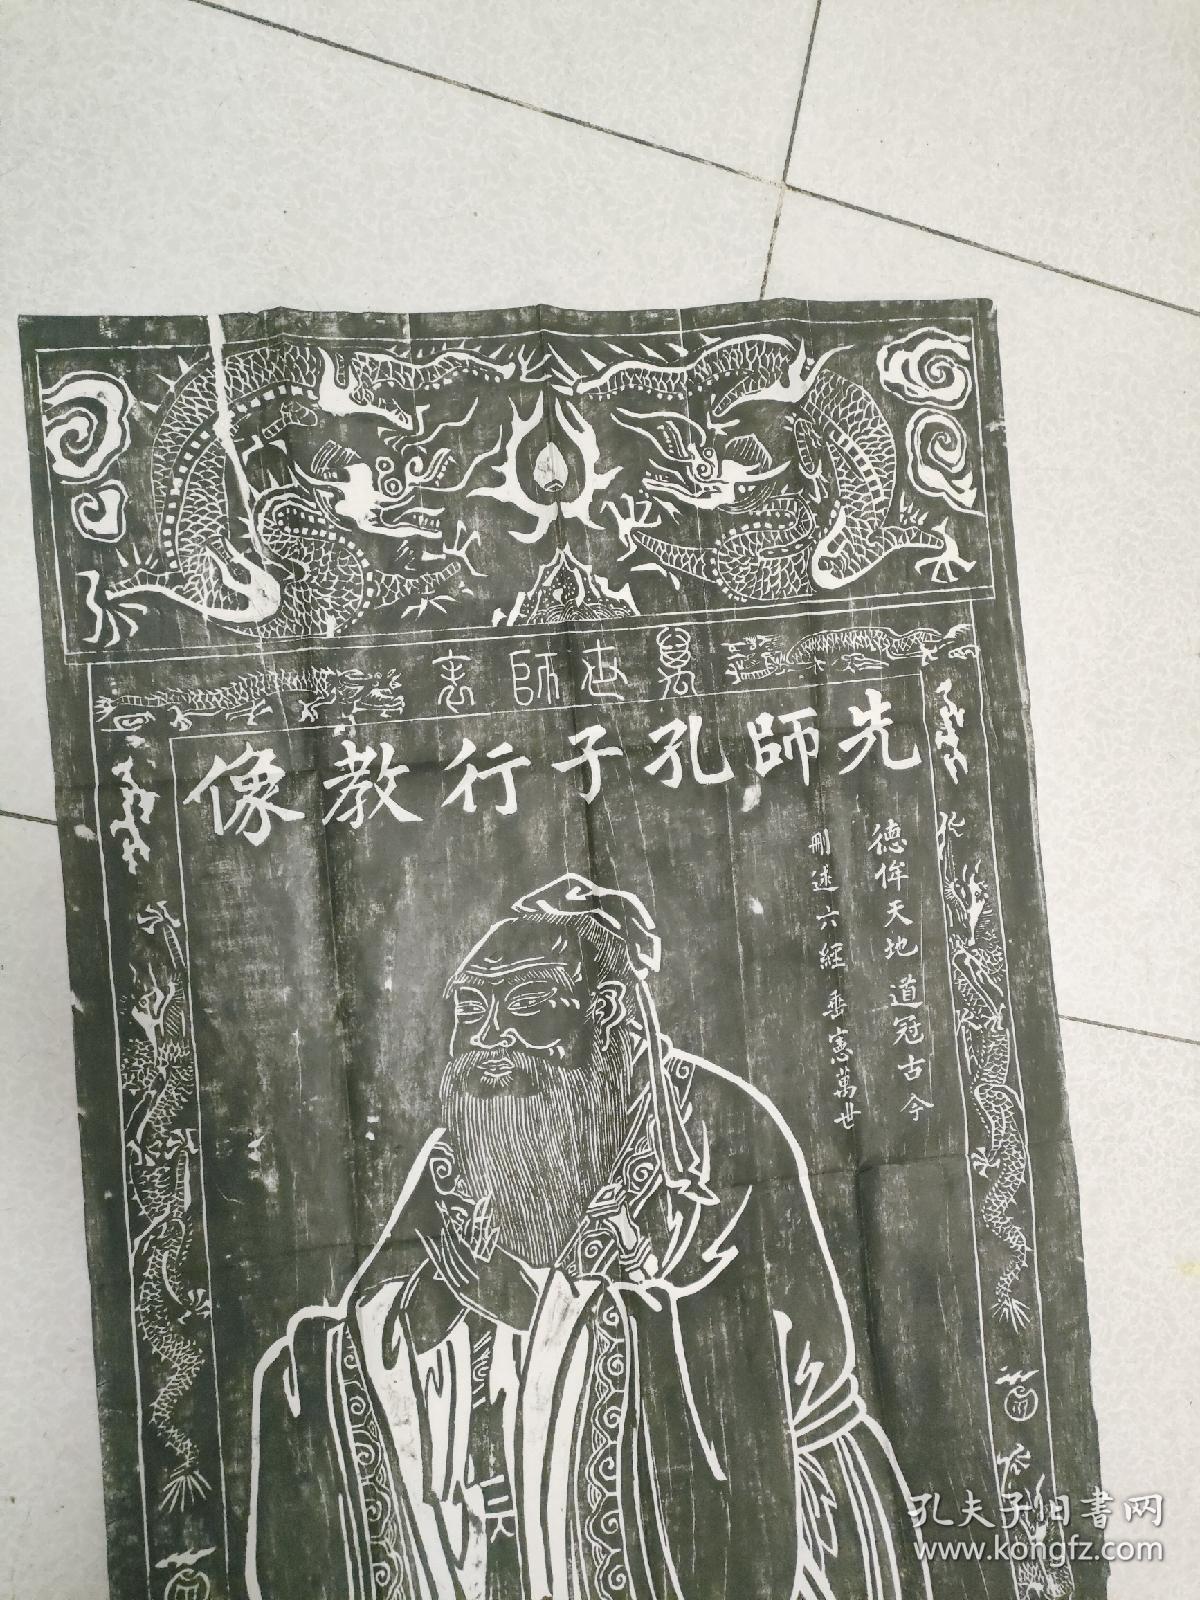 萬世師表
先師孔子行教像
德侔天地道冠古今
刪述六經垂憲萬世
孔夫子旧書网
www.kongfz.com